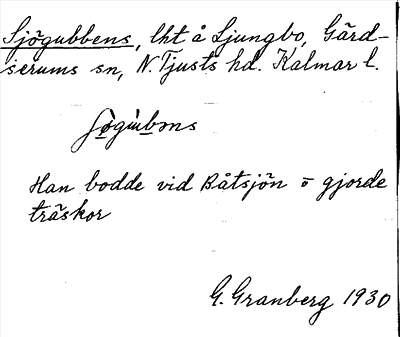 Sjögubbens, lht å Ljungbo, Gärd-
serums sn, N. Tjusts hd. Kalmar l.
Han bodde vid Båtsjön o gjorde
träskor
G. Granberg 1930